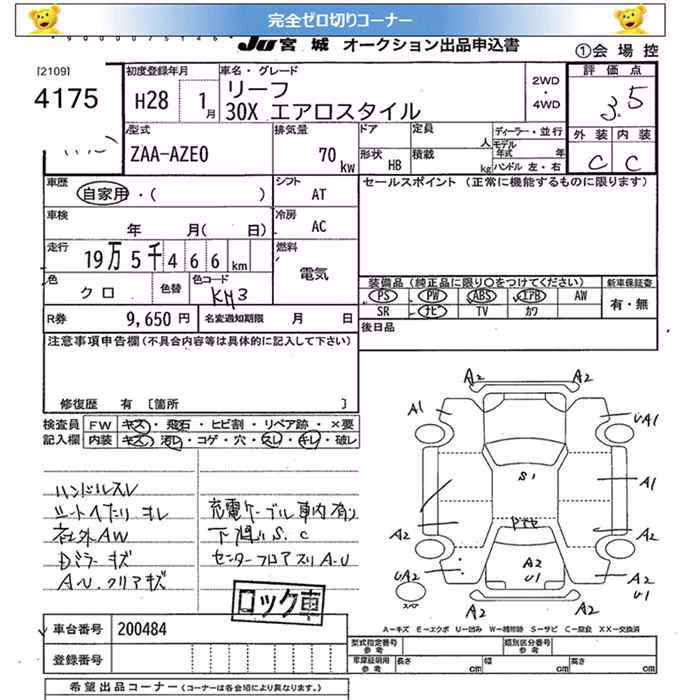 完全ゼロ切りコーナー
JU宮城 オークション出品申込書
①会場控
[2109]
4175
初度登録年月
H28 1月
車名・グレード
リーフ
30X エアロスタイル
2WD
・
4WD
評価点
3.5
外装 内装
C C
型式
ZAA-AZE0
排気量
70 kw
ドア
形状 HB
定員 人
積載 kg
ディーラー・並行
モデル年式 年
ハンドル 左・右
車歴
自家用・( )
シフト
AT
セールスポイント (正常に機能するものに限ります)
車検
年 月( 日)
冷房
AC
走行
19万5千466km
燃料
電気
色
クロ
色替
色コード
KH3
装備品 (純正品に限り○をつけてください)
新車保証書
PS PW ABS エアB AW
SR ナビ TV カワ
有・無
R券
9,650円
名変通知期限 月 日
後日品
注意事項申告欄(不具合内容等は具体的に記入して下さい)
修復歴 有 〔箇所 〕
検査員
記入欄
FW キズ・飛石・ヒビ割・リペア跡・×要
内装 キズ・汚レ・コゲ・穴・スレ・キレ・破レ
ハンドルスレ
シートヘタリ キレ
社外AW
Dミラーキズ
A-U.クリアキズ
充電ケーブル車内有り
下廻りS.C
センターフロアスリA-U
A2 A2
A1 UA1
S1
A1
A2 A2
A2
U1
UA2 A2
スペア
A2 A2
ロック車
A-キズ E-エクボ U-凹み W-補修跡 S-サビ C-腐食 XX-交換済
車台番号 200484
登録番号
型式指定番号
参考
類別区分番号
参考
車庫証明用
参考
長さ cm 幅 cm 高さ cm
希望出品コーナー (コーナーは各会場により異なります。)